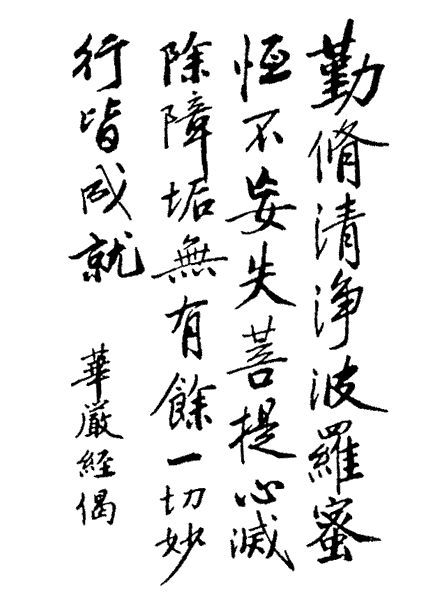 勤脩清淨波羅蜜
恆不妄失菩提心滅
除障垢無有餘一切妙
行皆成就
華嚴經偈